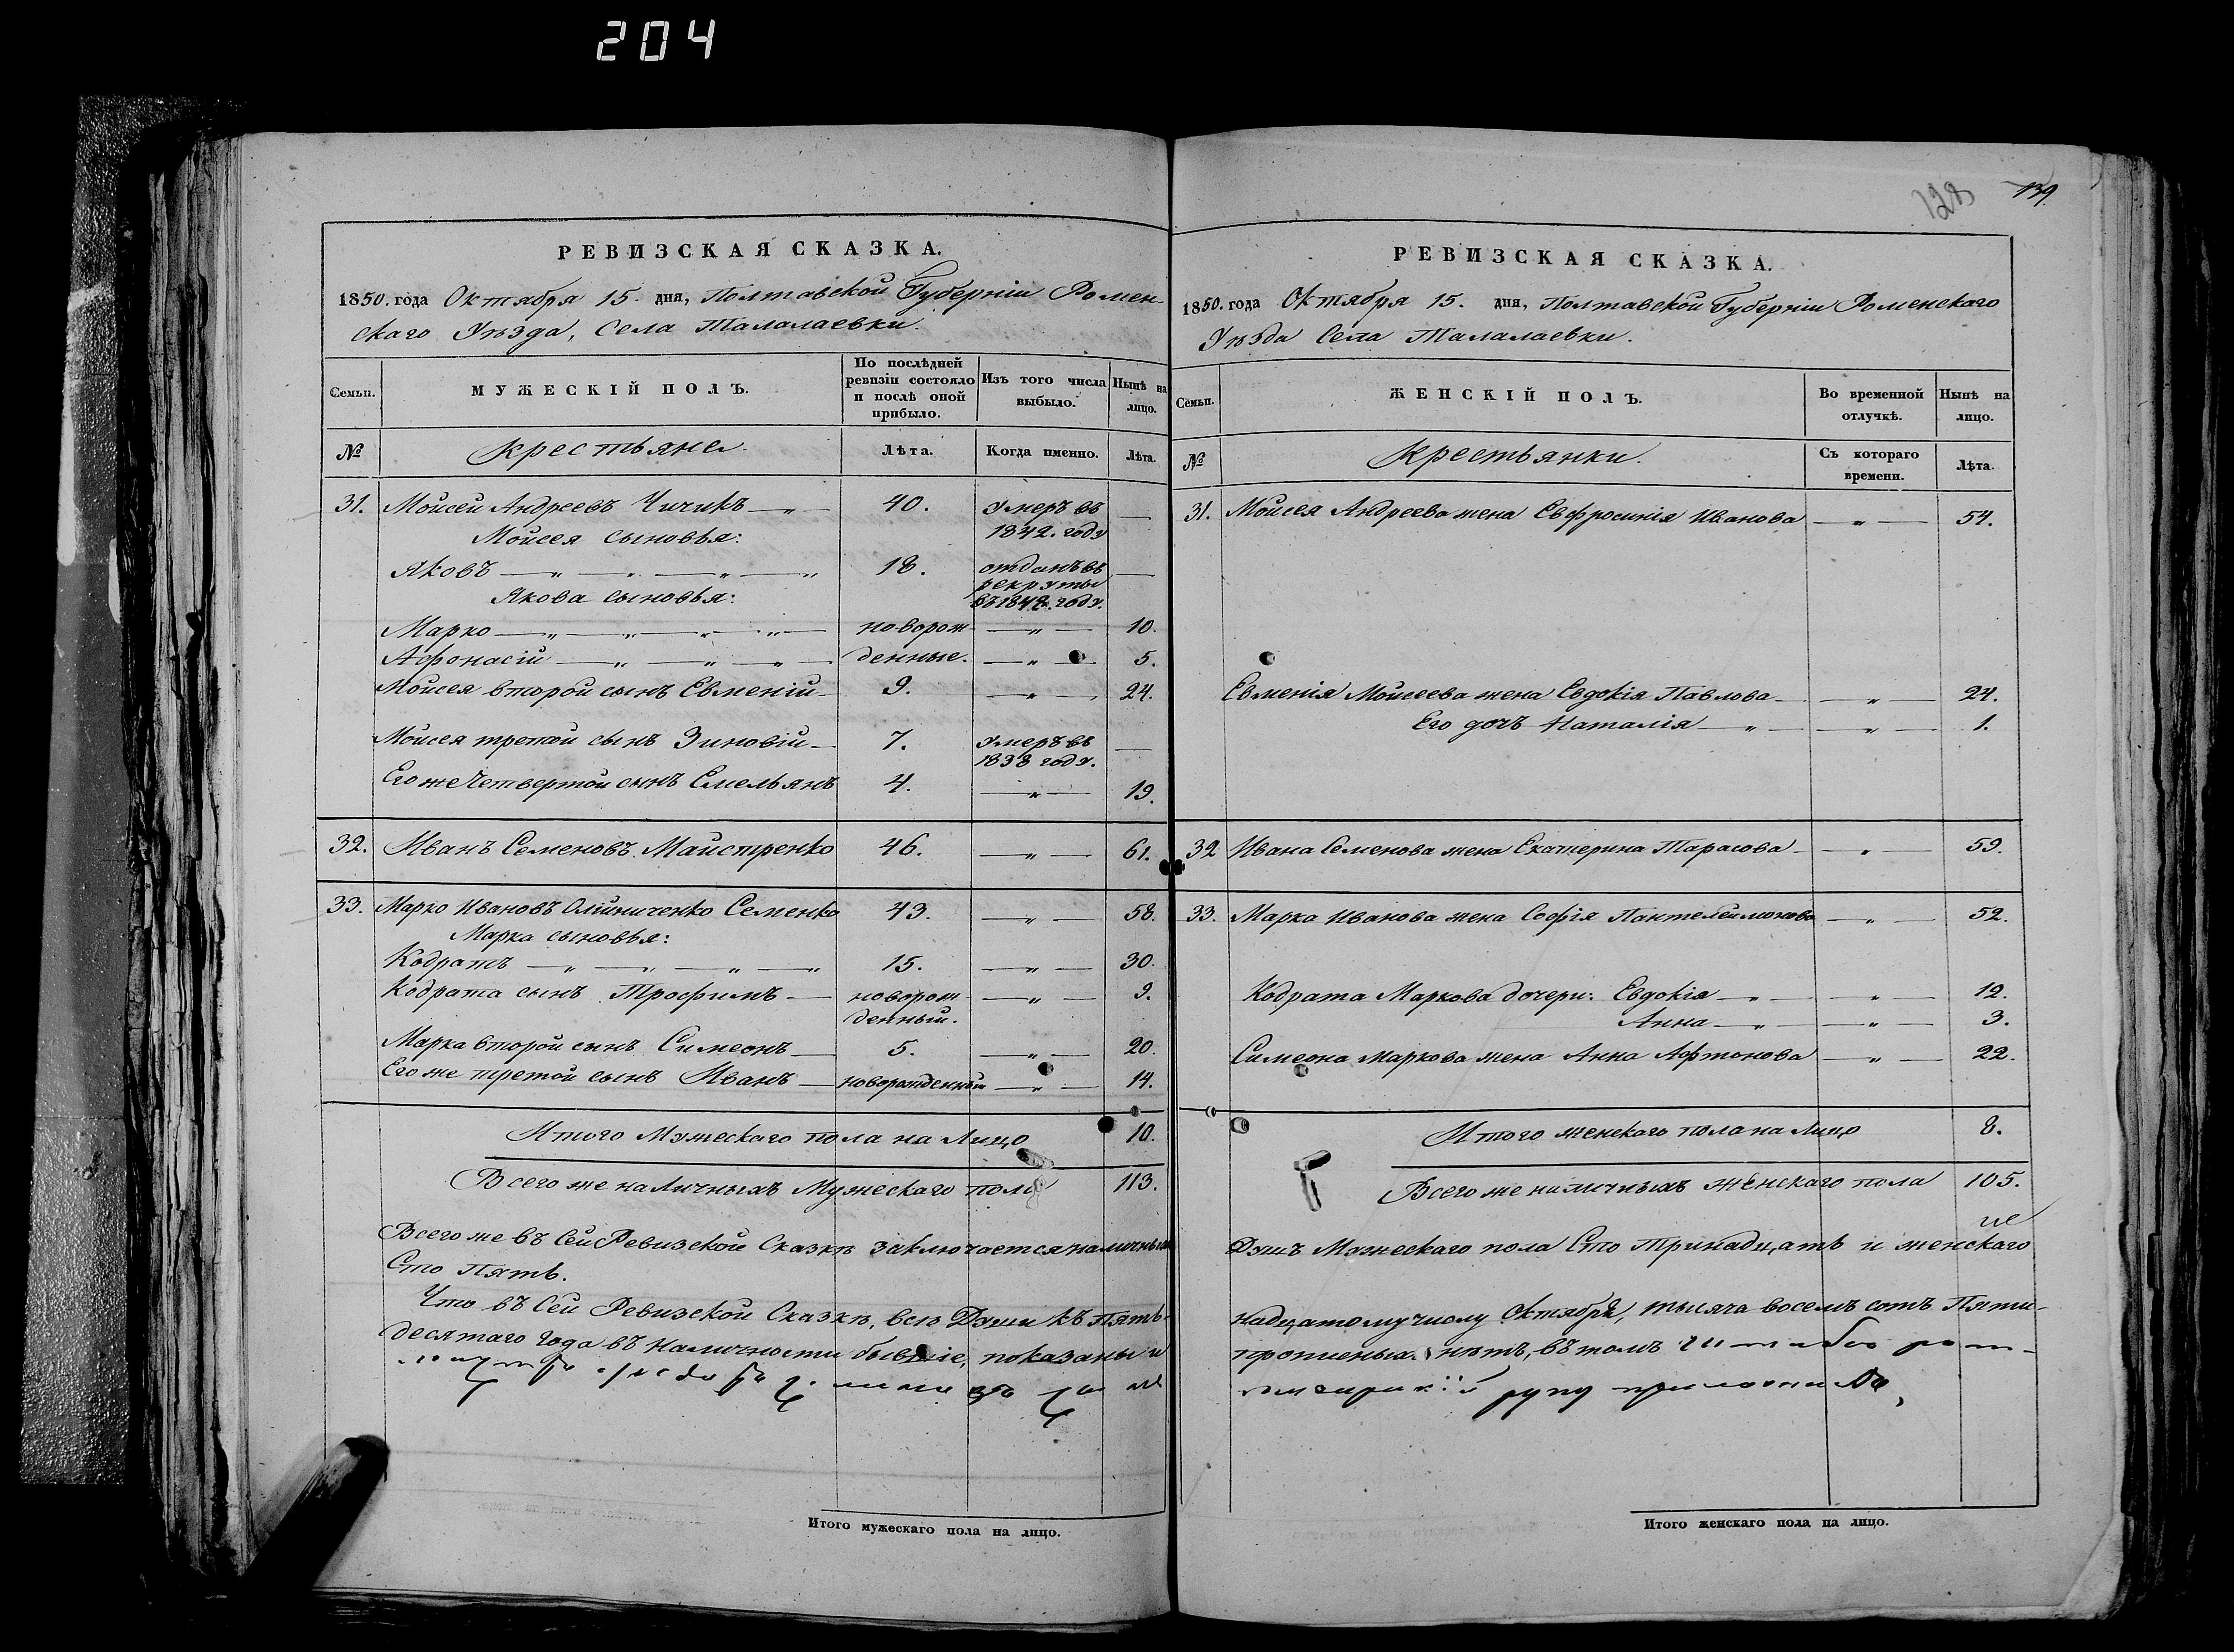 204
128
139.
РЕВИЗСКАЯ СКАЗКА.
1850. года Октября 15. дня, Полтавской Губерніи Ромен-
скаго Уѣзда, Села Талалаевки.
Семьи.
МУЖЕСКІЙ ПОЛЪ.
По послѣдней
ревизіи состояло
и послѣ оной
прибыло.
Изъ того числа
выбыло.
Нынѣ на
лицо.
№
Крестьяне.
Лѣта.
Когда именно.
Лѣта.
31. Мойсей Андреевъ Чичикъ — „ — 40. умеръ въ —
1842. году
Мойсея сыновья:
Яковъ — „ — „ — „ — „ 18. отданъ въ —
рекруты
въ 1848. году.
Якова сыновья:
Марко — „ — „ — „ — „ — новорож- — „ — 10.
Афонасій — „ — „ — „ — денные. — „ — 5.
Мойсея второй сынъ Евменій — 9. — „ — 24.
Мойсея третой сынъ Зиновій — 7. умеръ въ —
1838 году.
Его же Четвертой сынъ Емельянъ 4. — „ — 19.
32. Иванъ Семеновъ Майстренко 46. — „ — 61.
33. Марко Ивановъ Олийниченко Семенко 43. — „ — 58.
Марка сыновья:
Кодратъ — „ — „ — „ — „ 15. — „ — 30.
Кодрата сынъ Трофимъ — новорож- — „ — 9.
денный.
Марка второй сынъ Симеонъ — 5. — „ — 20.
Его же третой сынъ Иванъ — новорожденный — „ — 14.
Итого Мужескаго пола на Лицо 10.
Всего же наличныхъ Мужескаго пола 113.
Всего же въ сей Ревизской Сказкѣ заключается наличныхъ
Сто Пять.
Что въ Сей Ревизской Сказкѣ, всѣ Души къ Пять-
десятаго года въ наличности бывшіе, показаны и
Итого мужескаго пола на лицо.
РЕВИЗСКАЯ СКАЗКА.
1850. года Октября 15. дня, Полтавской Губерніи Роменскаго
Уѣзда Села Талалаевки.
Семьи.
ЖЕНСКІЙ ПОЛЪ.
Во временной
отлучкѣ.
Нынѣ на
лицо.
№
Крестьянки.
Съ котораго
времени.
Лѣта.
31. Мойсея Андреева жена Евфросинія Иванова — „ — 54.
Евменія Мойсеева жена Евдокія Павлова — — „ — 24.
Его дочь Наталія — „ — — „ — 1.
32 Ивана Семенова жена Екатерина Тарасова — — „ — 59.
33. Марка Иванова жена Софія Пантелеймонова — „ — 52.
Кодрата Маркова дочери: Евдокія — „ — — „ — 12.
Анна — „ — — „ — 3.
Симеона Маркова жена Анна Афтонова — „ — 22.
Итого женскаго пола на Лицо 8.
Всего же наличныхъ женскаго пола 105.
Душъ Мужескаго пола Сто Тринадцать и женскаго
надцатому числу Октября, тысяча восемъ сотъ Пяти-
пропиеныхъ нѣтъ, въ томъ
руку приложила,
Итого женскаго пола на лицо.